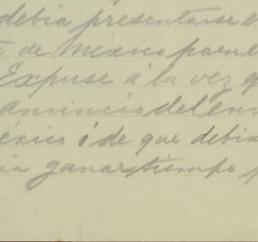 debia presentarse e
de México para e
Expuse á la vez q
anuncio del env
éxico ó de que debia
ia ganar tiempo p